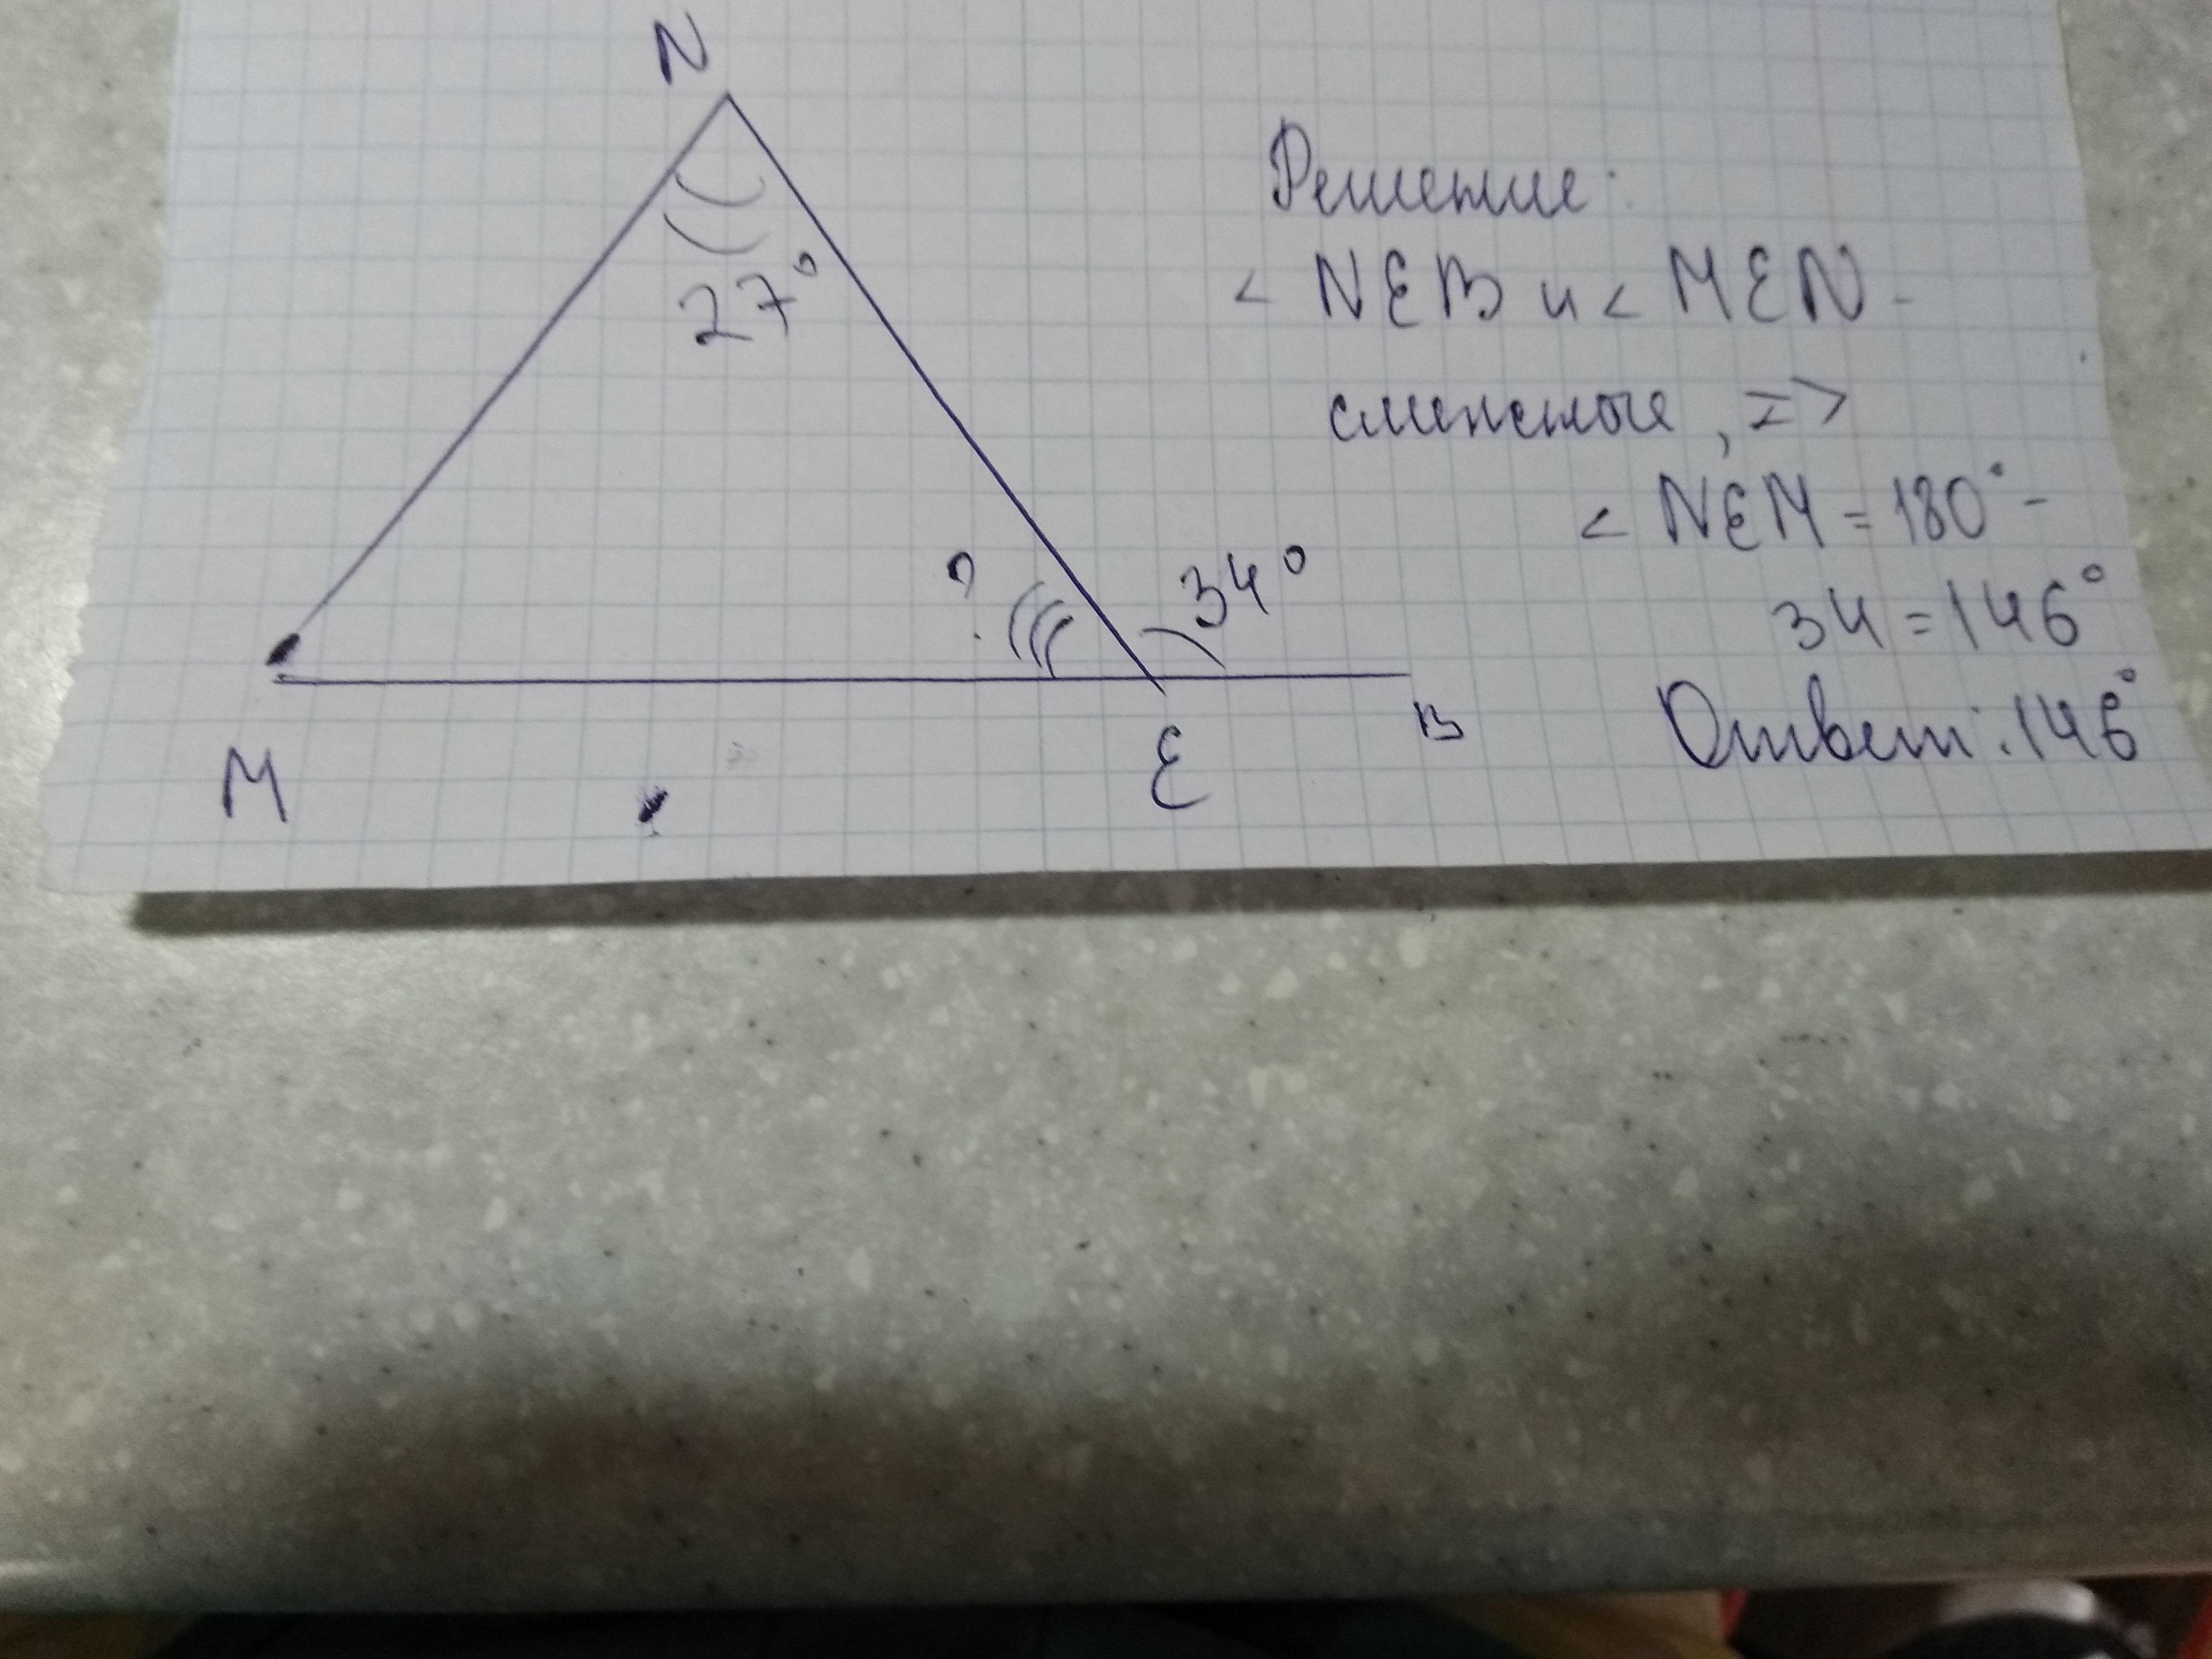 N
27°
?
34°
M
E
B
Решение:
< NEB и < MEN -
смежные, =>
< NEM = 180° -
34 = 146°
Ответ: 146°